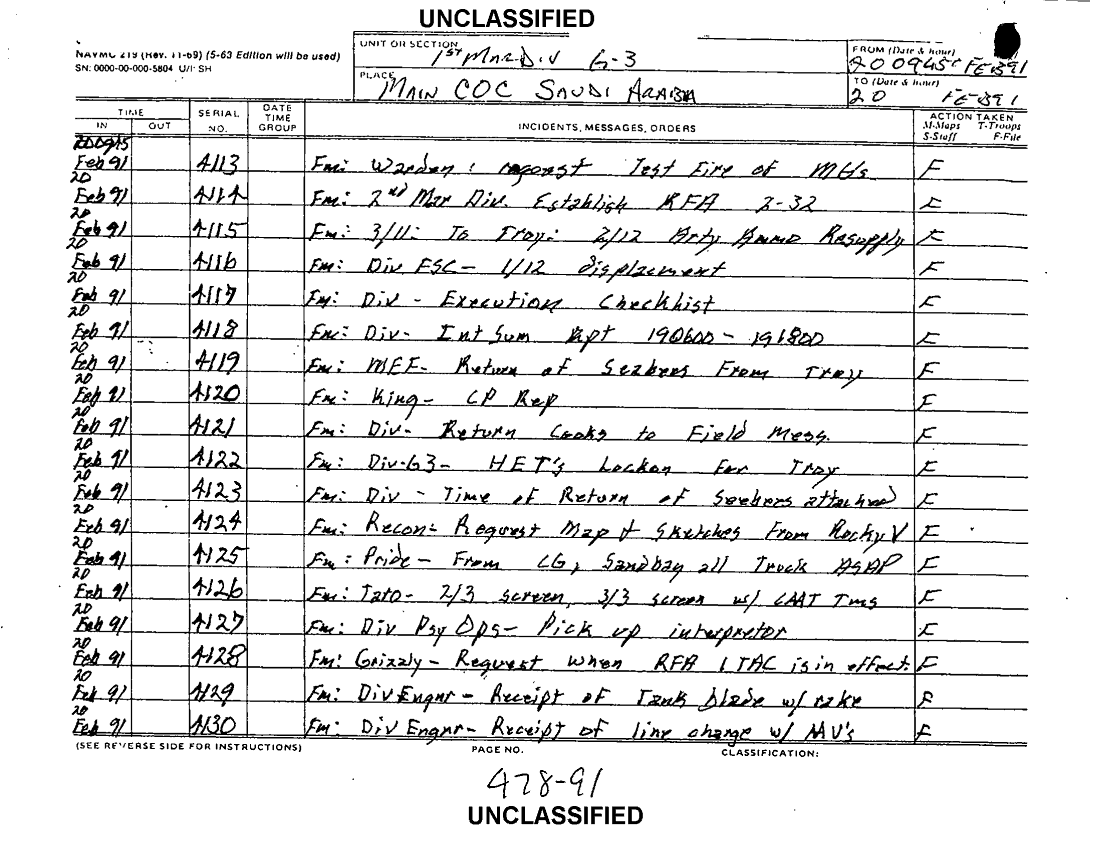 UNCLASSIFIED
NAVMC 219 (Rev. 11-69) (5-63 Edition will be used)
SN: 0000-00-000-5804 U/I SH
UNIT OR SECTION
1ST MARDIV G-3
FROM (Date & hour)
200945C FEB91
PLACE
MAIN COC SAUDI ARABIA
TO (Date & hour)
20 FEB91
TIME
IN OUT
SERIAL NO.
DATE TIME GROUP
INCIDENTS, MESSAGES, ORDERS
ACTION TAKEN
M-Maps T-Troops
S-Staff F-File
Feb 91 4113 Fm: Warden: request Test Fire of MG's F
20 Feb 91 4114 Fm: 2nd Mar Div. Establish RFA 2-32 F
20 Feb 91 4115 Fm: 3/11: To Troy: 2/12 Arty Ammo Resupply F
20 Feb 91 4116 Fm: Div FSC- 1/12 displacement F
20 Feb 91 4117 Fm: Div - Execution Checklist F
20 Feb 91 4118 Fm: Div- Int Sum Rpt 190600-191800 F
20 Feb 91 4119 Fm: MEF- Return of Seabees From Troy F
20 Feb 91 4120 Fm: King- CP Rep F
20 Feb 91 4121 Fm: Div- Return Cooks to Field Mess. F
20 Feb 91 4122 Fm: Div-G3- HET's Lockon For Troy F
20 Feb 91 4123 Fm: Div - Time of Return of Seebees attached F
20 Feb 91 4124 Fm: Recon- Request Map & Sketches From Rocky V F
20 Feb 91 4125 Fm: Pride- From CG, Sandbag all Truck ASAP F
20 Feb 91 4126 Fm: Taro- 2/3 screen, 3/3 screen w/ CAAT Tms F
20 Feb 91 4127 Fm: Div Psy Ops- Pick up interpretor F
20 Feb 91 4128 Fm: Grizzly- Request when RFA 1 TAC is in effect. F
20 Feb 91 4129 Fm: Div Engnr- Receipt of Tank blade w/ rake F
20 Feb 91 4130 Fm: Div Engnr- Receipt of line charge w/ AAV's F
(SEE REVERSE SIDE FOR INSTRUCTIONS)
PAGE NO.
CLASSIFICATION:
478-91
UNCLASSIFIED